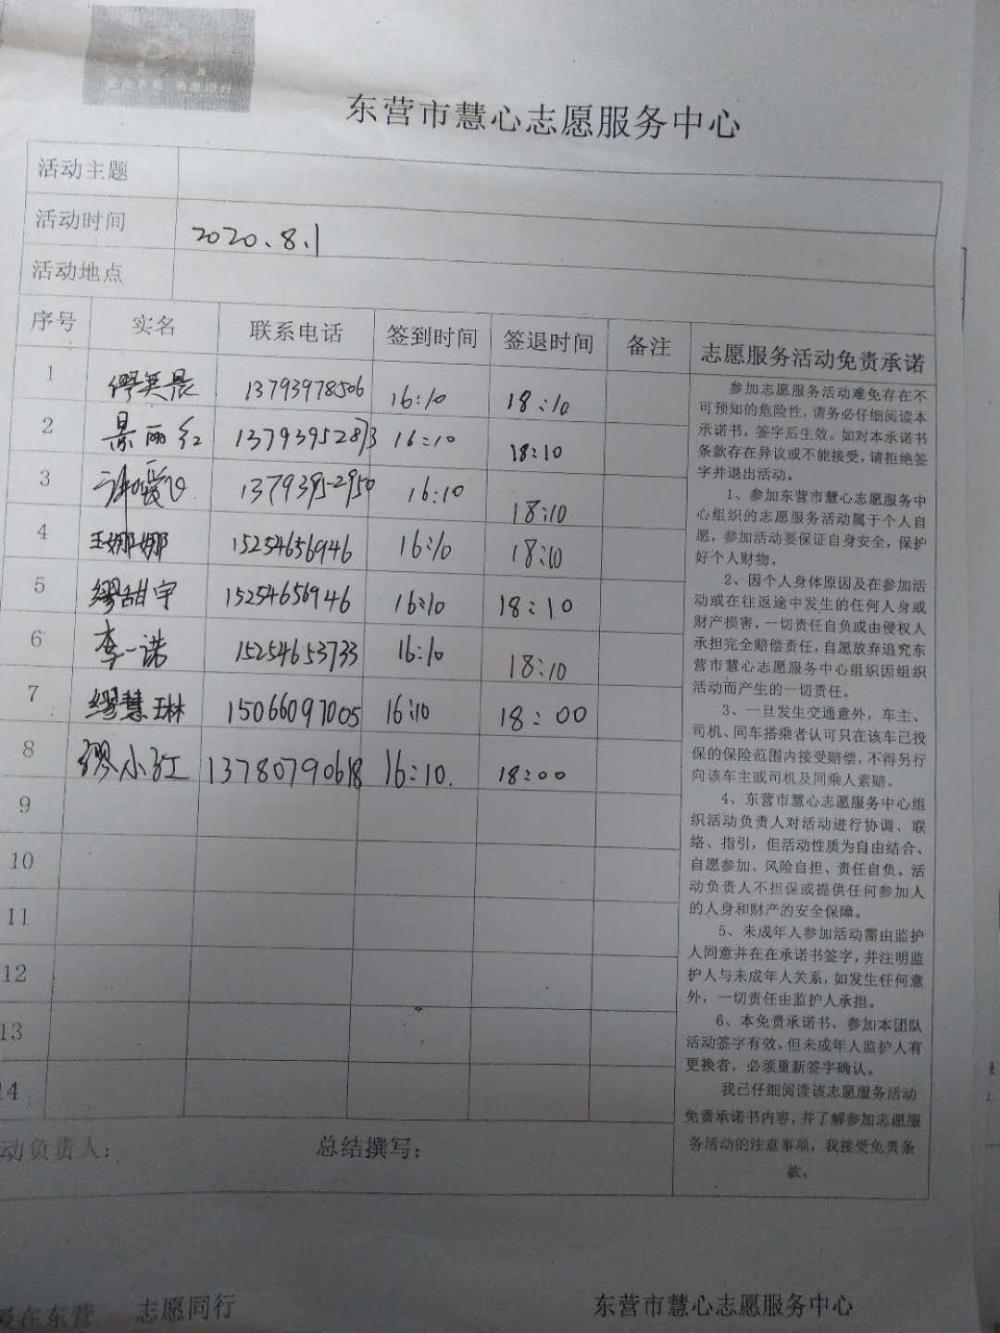 东营市慧心志愿服务中心
活动主题
活动时间 2020.8.1
活动地点
序号 实名 联系电话 签到时间 签退时间 备注 志愿服务活动免责承诺
1 缪英晨 13793978506 16:10 18:10
2 景丽红 13793952873 16:10 18:10
3 13793952950 16:10 18:10
4 王娜娜 15254656946 16:10 18:10
5 缪甜宇 15254656946 16:10 18:10
6 李一诺 15254653733 16:10 18:10
7 缪慧琳 15066097005 16:10 18:00
8 缪小红 13780790618 16:10. 18:00
9
10
11
12
13
14
参加志愿服务活动难免存在不
可预知的危险性,请务必仔细阅读本
承诺书,签字后生效。如对本承诺书
条款存在异议或不能接受,请拒绝签
字并退出活动。
1、参加东营市慧心志愿服务中
心组织的志愿服务活动属于个人自
愿,参加活动要保证自身安全,保护
好个人财物。
2、因个人身体原因及在参加活
动或在往返途中发生的任何人身或
财产损害,一切责任自负或由侵权人
承担完全赔偿责任,自愿放弃追究东
营市慧心志愿服务中心组织因组织
活动而产生的一切责任。
3、一旦发生交通意外,车主、
司机、同车搭乘者认可只在该车已投
保的保险范围内接受赔偿,不得另行
向该车主或司机及同乘人索赔。
4、东营市慧心志愿服务中心组
织活动负责人对活动进行协调、联
络、指引,但活动性质为自由结合、
自愿参加、风险自担、责任自负。活
动负责人不担保或提供任何参加人
的人身和财产的安全保障。
5、未成年人参加活动需由监护
人同意并在在承诺书签字,并注明监
护人与未成年人关系,如发生任何意
外,一切责任由监护人承担。
6、本免责承诺书、参加本团队
活动签字有效、但未成年人监护人有
更换者,必须重新签字确认。
我已仔细阅读该志愿服务活动
免责承诺书内容,并了解参加志愿服
务活动的注意事项,我接受免责条
款。
动负责人: 总结撰写:
爱在东营 志愿同行 东营市慧心志愿服务中心